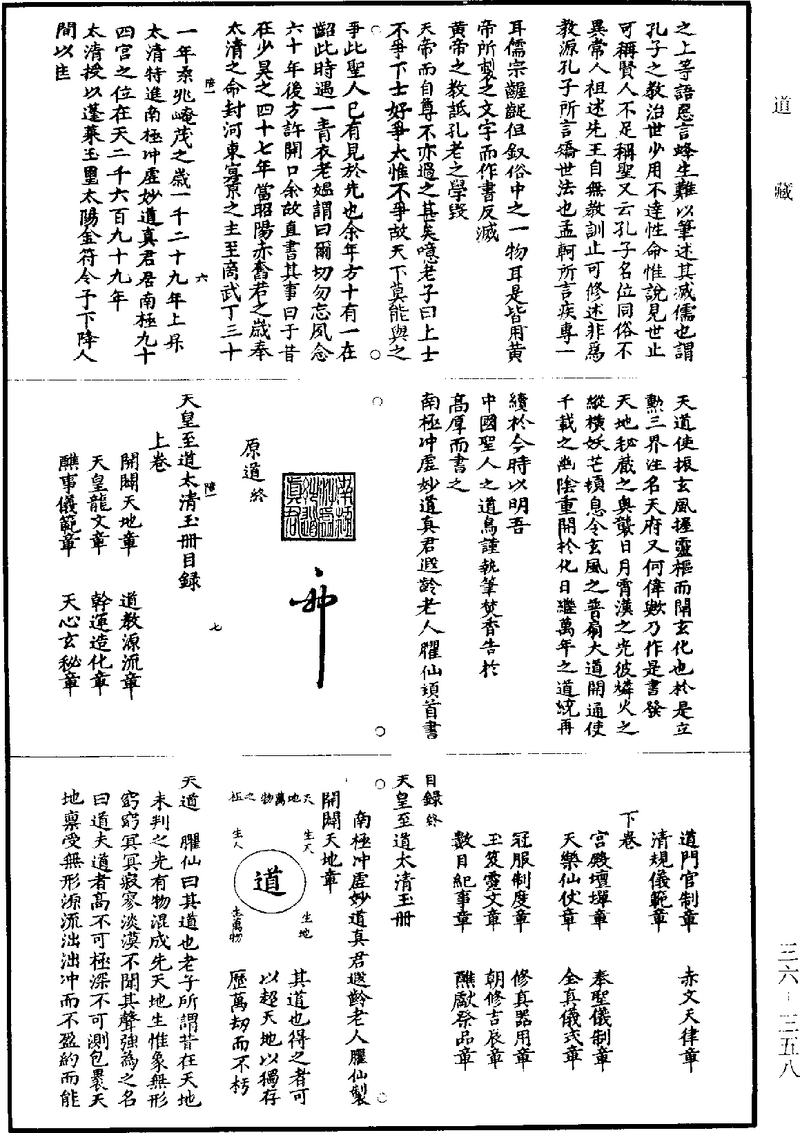 道藏
之上等語惡言蜂生難以筆述其滅儒也謂
孔子之教治世少用不達性命惟說見世止
可稱賢人不足稱聖又云孔子名位同俗不
異常人祖述先王自無教訓止可修述非爲
教源孔子所言矯世法也孟軻所言疾專一
耳儒宗齷齪但叙俗中之一物耳是皆用黄
帝所製之文字而作書反滅
黄帝之教詆孔老之學毀
天帝而自尊不亦過之甚矣噫老子曰上士
不爭下士好爭太惟不爭故天下莫能與之
爭此聖人已有見於先也余年方十有一在
齠此時遇一青衣老媪謂曰爾切勿忘風念
六十年後方許開口余故直書其事曰于昔
在少昊之四十七年當昭陽赤奮若之歲奉
太清之命封河東冥京之主至商武丁三十
一年柔兆崦茂之歲一千二十九年上昇
太清特進南極冲虚妙道真君居南極九十
四宫之位在天二千六百九十九年
太清授以蓬萊玉璽太陽金符令予下降人
間以匡
障一 六
天道使振玄風握靈樞而闡玄化也於是立
勲三界注名天府又何偉歟乃作是書發
天地秘藏之奥襲日月霄漢之光彼燐火之
縱横妖芒頓息令玄風之普扇大道開通使
千載之幽陰重開於化日繼萬年之道統再
續於今時以明吾
中國聖人之道焉謹執筆焚香告於
高厚而書之
南極冲虚妙道真君遐齡老人臞仙頊首書
南極冲虚妙道真君
原道終
障一 七
天皇至道太清玉冊目録
上卷
開闢天地章 道教源流章
天皇龍文章 斡運造化章
醮事儀範章 天心玄秘章
道門官制章 赤文天律章
清規儀範章
下卷
宫殿壇墠章 奉聖儀制章
天樂仙仗章 全真儀式章
冠服制度章 修真器用章
玉笈靈文章 朝修吉辰章
數目紀事章 醮獻祭品章
目録終
天皇至道太清玉冊
南極冲虚妙道真君遐齡老人臞仙製
開闢天地章
天地萬物之極
生天 生地
道
生人 生萬物
其道也得之者可
以超天地以獨存
歷萬刼而不朽
天道 臞仙曰其道也老子所謂昔在天地
未判之先有物混成先天地生惟象無形
窈窈冥冥寂寥淡漠不聞其聲強為之名
曰道夫道者高不可極深不可測包裹天
地禀受無形源流泏泏冲而不盈約而能
三六-三五八